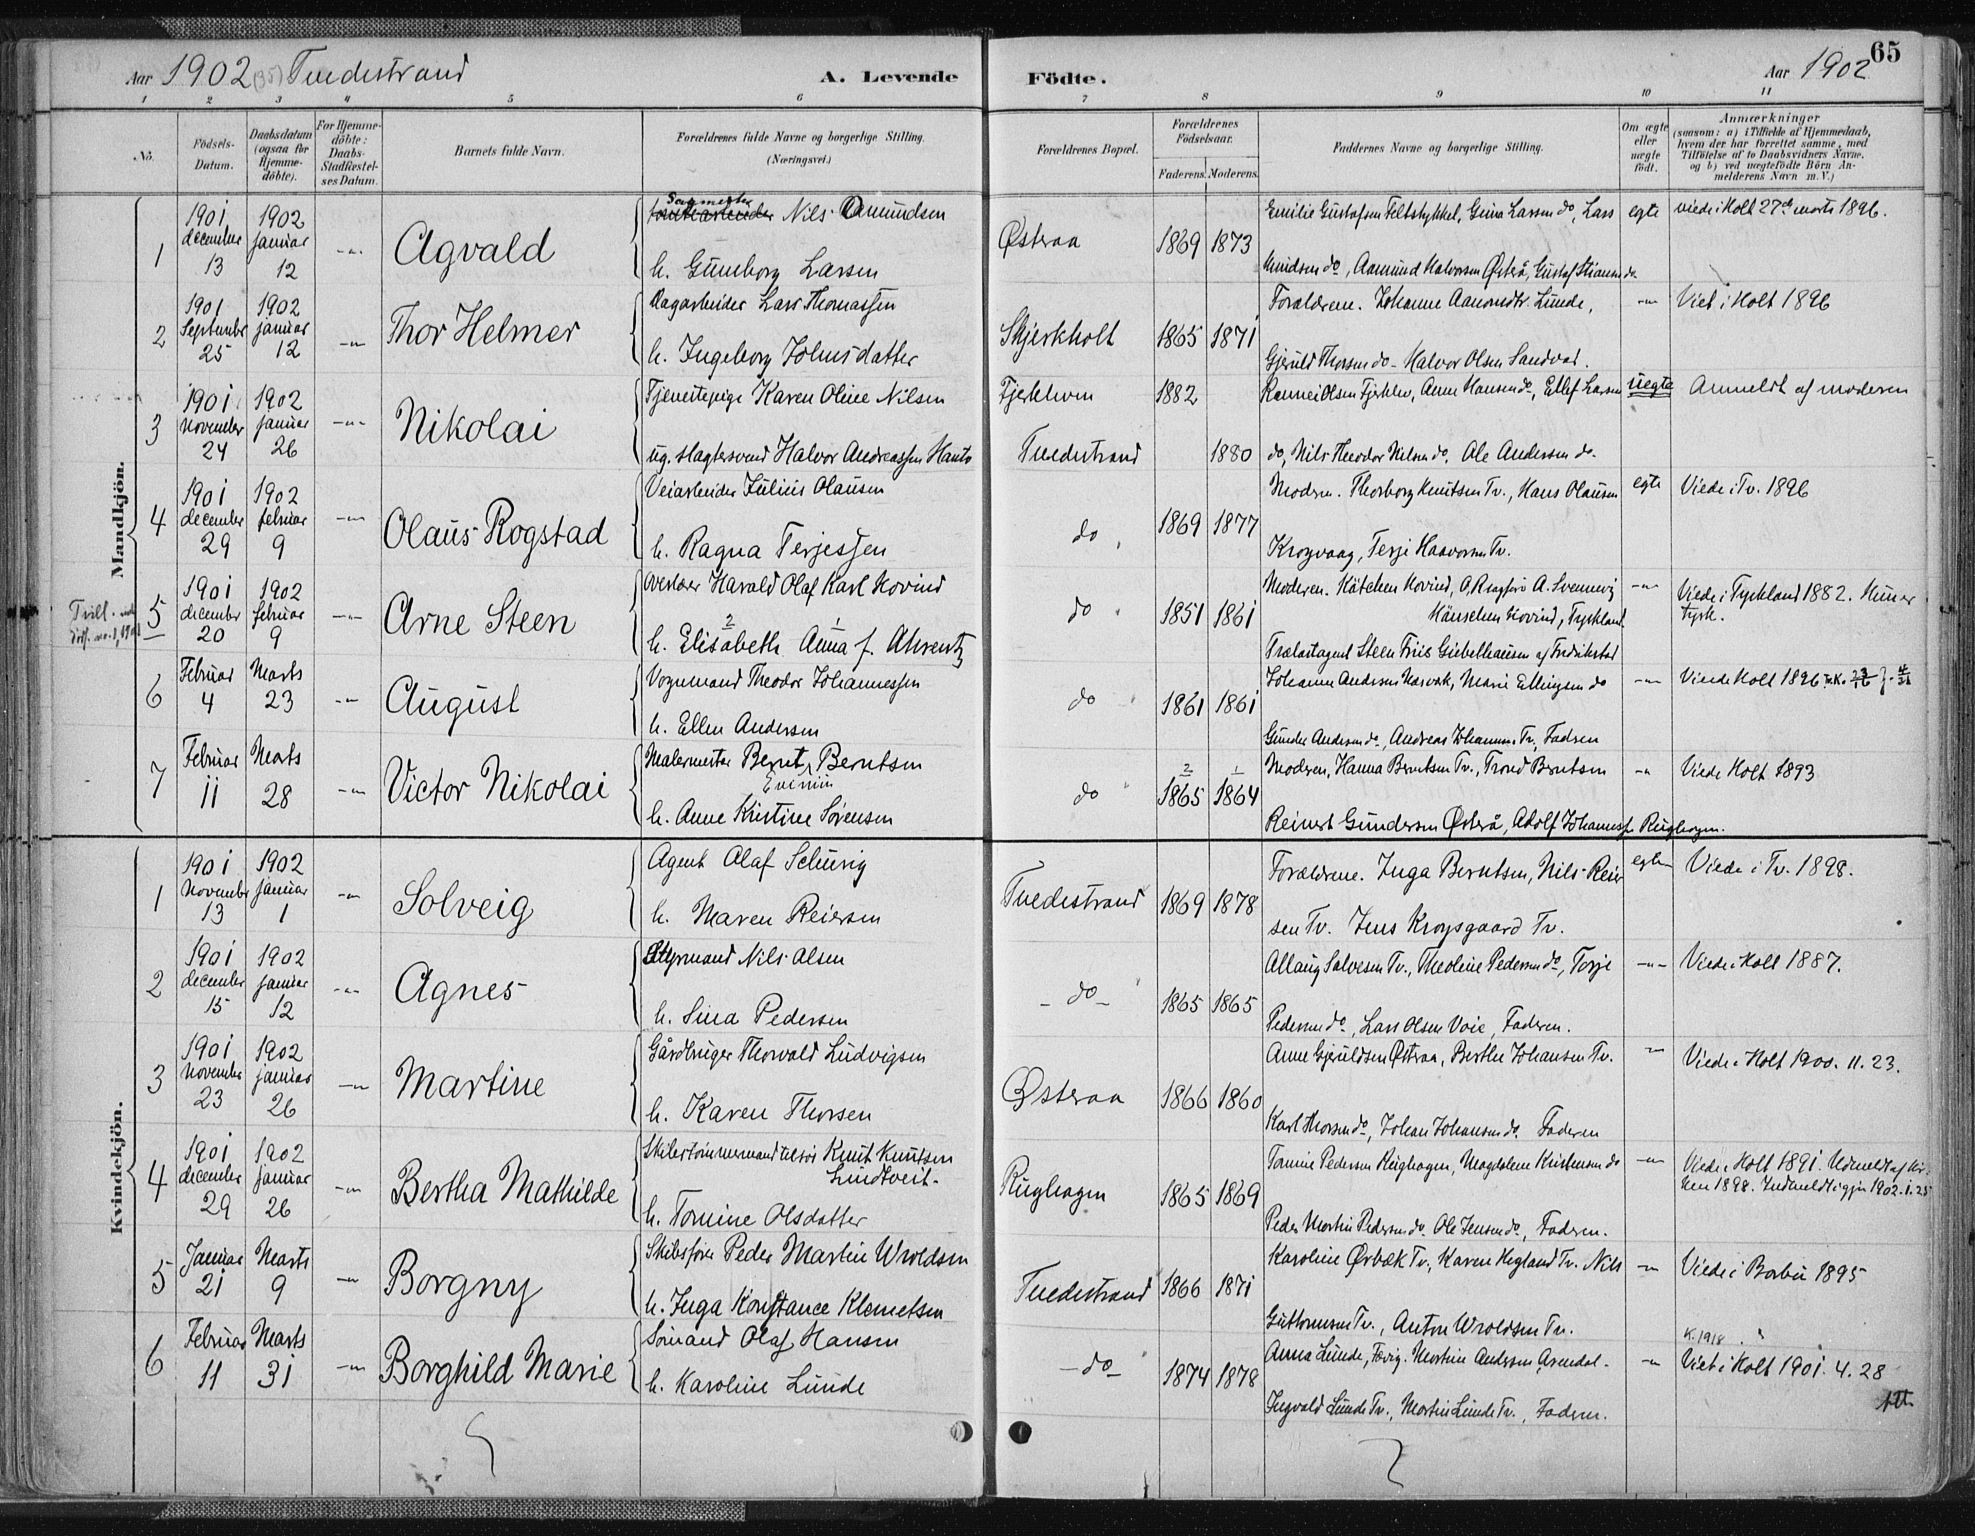 Aar 1902 (35) Tvedestrand
A. Levende
Födte.
Aar 1902
65
1 2 3 4 5 6 7 8 9 10 11
No.
Födsels-Datum.
Daabsdatum (ogsaa for Hjemme-döbte).
For Hjemme-döbte: Daabs-Stadfæstel-ses Datum.
Barnets fulde Navn.
Forældrenes fulde Navne og borgerlige Stilling. (Næringsvei.)
Forældrenes Bopæl.
Forældrenes Födselsaar.
Faderens. Moderens.
Faddernes Navne og borgerlige Stilling.
Om ægte eller uægte født.
Anmærkninger
(saasom: a) i Tilfælde af Hjemmedaab, hvem der har forrettet samme, med Tilföielse af to Daabsvidners Navne, og b) ved uægtefödte Börn An-melderens Navn m. V.)
Mandkjön.
1 1901 december 13 1902 januar 12 -"- Agvald
Sagmester Nils Omundsen
h. Gunborg Larsen
Østeraa 1869 1873
Emilie Gustafsen Feltstykket, Gina Larsen do, Lars
Knudsen do, Aamund Halvorsen Østerå, Gustaf Stiansen do
egte viede i Holt 27de marts 1896.
2 1901 September 25 1902 januar 12 -"- Thor Helmer
Dagarbeider Lars Thomassen
h. Ingeborg Johnsdatter
Skjerkholt 1865 1871
Forældrene. Johanne Aanondtr. Lunde,
Gjeruld Thorsen do - Halvor Olsen Sandvad.
-"- Viet i Holt 1896
3 1901 november 24 1902 januar 26 -"- Nikolai
Tjenestepige Karen Oline Nilsen
ug. slagtersvend Halvor Andreassen
Fjerkleven 1882
Tvedestrand 1880
Olsen Fjerklev, Anne Hansen do, Ellef Larsen
do, Nils Theodor Nilsen do, Ole Andersen do.
uegte Anmeldt af moderen
4 1901 december 29 1902 februar 9 -"- Olaus Rogstad
Veiarbeider Julius Olausen
h. Ragna Terjessen
do 1869 1877
Moderen. Thorborg Knutsen Tv., Hans Olausen
Krogvaag, Terje Haavorsen Tv.
egte Viede i Tv. 1896
5 1901 december 20 1902 februar 9 -"- Arne Steen
Harald Olaf Karl Hovind
2 1
h. Elisabeth Anna f. Ahrentz
do 1851 1861
Moderen. Kätchen Hovind, A. Svennevig
Hänschen Hovind, Tyskland
Trælastagent Steen Friis Giebelhausen af Fredrikstad
-"- Viede i Tyskland 1882. Hun er
tysk.
6 Februar 4 Marts 23 -"- August
Vognmand Theodor Johannessen
h. Ellen Andersen
do 1861 1861
Johanne Andersen Narvak, Marie Ellingsen do
Gunder Andersen do, Andreas Johannsen Tv., Fadren
-"- Viede Holt 1896
7 Februar 11 Marts 28 -"- Victor Nikolai
Malermester Bernt Berntsen
h. Anne Kristine Sørensen
2 1
do 1865 1864
Moderen, Hanna Berntsen Tv., Trond Berntsen
Reinert Gundersen Østerå, Adolf Johanness. Rughagen.
-"- Viede Holt 1893
Kvindekjön.
1 1901 November 13 1902 Januar 1 -"- Solveig
Agent Olaf Schürig
h. Maren Reiersen
Tvedestrand 1869 1878
Forældrene. Inga Berntsen, Nils Reier
sen Tv. Jens Krogsgaard Tv.
egte Viede i Tv. 1898.
2 1901 december 15 1902 januar 12 -"- Agnes
Styrmand Nils Olsen
h. Sina Pedersen
- do - 1865 1865
Allaug Salvesen Tv., Theoline Pedersen do, Terje
Pedersen do, Lars Olsen Voie, Faderen.
-"- Viede i Holt 1887.
3 1901 november 23 1902 januar 26 -"- Martine
Gårdbruger Thorvald Ludvigsen
h. Karen Thorsen
Østeraa 1866 1860
Anne Gjeruldsen Østraa, Berthe Johansen Tv.
Karl Thorsen do, Johan Johansen do. Faderen
-"- Viede i Holt 1900. 11. 23.
4 1901 december 29 1902 januar 26 -"- Bertha Mathilde
Skibstømmermand Knut Knutsen
Lindtveit.
h. Tomine Olsdatter
Rughagen 1865 1869
Tomine Pedersen Rughagen, Magdalene Kristensen do
Peder Martin Pedersen do, Ole Jensen do, Faderen.
-"- Viede i Holt 1891. Udmeldt af Kir-
ken 1898. Indmeldt igjen 1902. 1. 25
5 Januar 21 Marts 9 -"- Borgny
Skibsfører Peder Martin Wroldsen
h. Inga Konstance Klemetsen
Tvedestrand 1866 1871
Karoline Ørbæk Tv., Karen Hegland Tv. Nils
Guttormsen Tv., Anton Wroldsen Tv.
-"- Viede i Barbu 1895
6 Februar 11 Marts 31 -"- Borghild Marie
Sømand Olaf Hansen
h. Karoline Lunde
- do - 1874 1878
Anna Lunde, Tv. Martin Andersen Arendal.
Ingvald Lunde Tv., Martin Lunde Tv., Fadren.
K. 1918
-"- Viet i Holt 1901. 4. 28